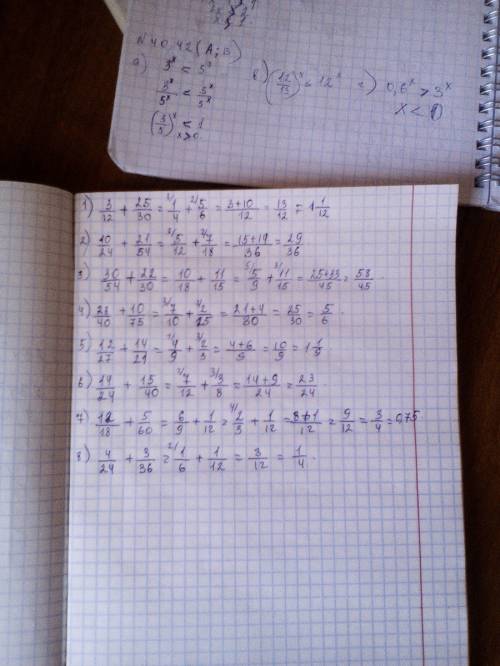 N 40.42 (А; В)
а) 3ˣ < 5ˣ
3ˣ/5ˣ < 5ˣ/5ˣ
(3/5)ˣ < 1
x > 0
в) (12/13)ˣ < 12ˣ
с) 0,6ˣ > 3ˣ
x < 0
1) 3/12 + 25/30 = 3/1/4 + 2/5/6 = 3+10/12 = 13/12 = 1 1/12
2) 10/24 + 21/54 = 3/5/12 + 2/7/18 = 15+14/36 = 29/36
3) 30/54 + 22/30 = 10/18 + 11/15 = 5/5/9 + 3/11/15 = 25+33/45 = 58/45
4) 28/40 + 10/75 = 3/7/10 + 2/2/15 = 21+4/30 = 25/30 = 5/6.
5) 12/27 + 14/21 = 1/4/9 + 3/2/3 = 4+6/9 = 10/9 = 1 1/9
6) 14/24 + 15/40 = 2/7/12 + 3/3/8 = 14+9/24 = 23/24
7) 12/18 + 5/60 = 6/9 + 1/12 = 4/2/3 + 1/12 = 8+1/12 = 9/12 = 3/4 = 0,75
8) 4/24 + 3/36 = 2/1/6 + 1/12 = 3/12 = 1/4.